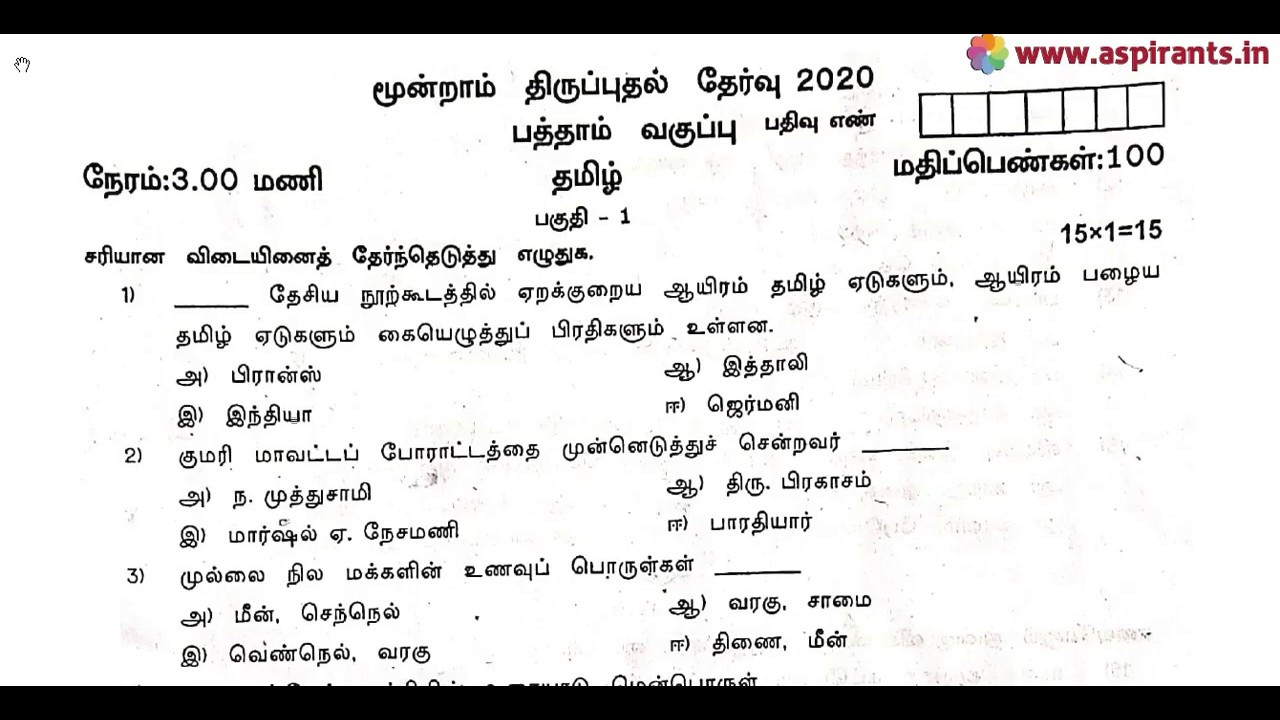 www.aspirants.in
மூன்றாம் திருப்புதல் தேர்வு 2020
பத்தாம் வகுப்பு பதிவு எண்
நேரம்:3.00 மணி தமிழ் மதிப்பெண்கள்:100
பகுதி - 1
சரியான விடையினைத் தேர்ந்தெடுத்து எழுதுக. 15×1=15
1) ______ தேசிய நூற்கூடத்தில் ஏறக்குறைய ஆயிரம் தமிழ் ஏடுகளும், ஆயிரம் பழைய
தமிழ் ஏடுகளும் கையெழுத்துப் பிரதிகளும் உள்ளன.
அ) பிரான்ஸ் ஆ) இத்தாலி
இ) இந்தியா ஈ) ஜெர்மனி
2) குமரி மாவட்டப் போராட்டத்தை முன்னெடுத்துச் சென்றவர் ______
அ) ந. முத்துசாமி ஆ) திரு. பிரகாசம்
இ) மார்ஷல் ஏ. நேசமணி ஈ) பாரதியார்
3) முல்லை நில மக்களின் உணவுப் பொருள்கள் ______
அ) மீன், செந்நெல் ஆ) வரகு, சாமை
இ) வெண்நெல், வரகு ஈ) திணை, மீன்